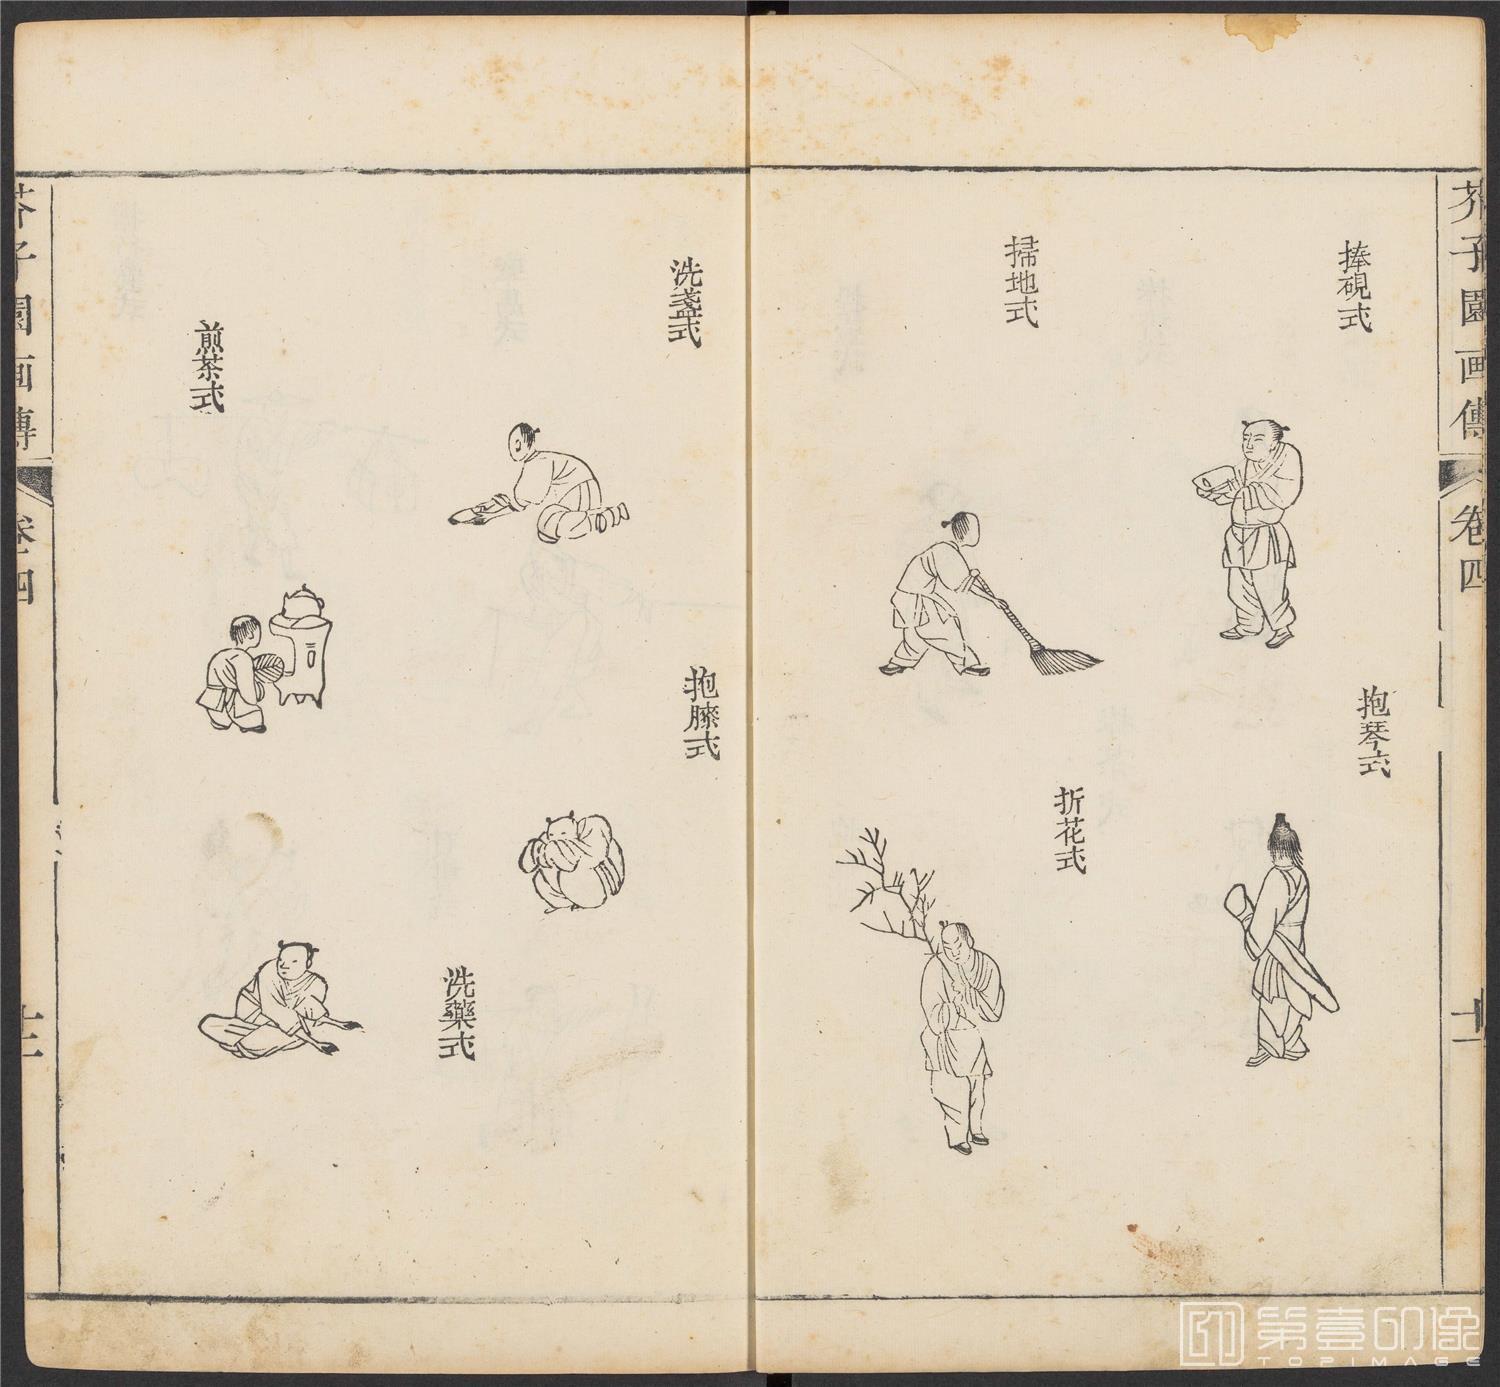 芥子園画傳
卷四
十一
捧硯式
抱琴式
掃地式
折花式
洗盞式
抱膝式
洗藥式
煎茶式
芥子園画傳
卷四
十二
第壹印像
TOPIMAGE